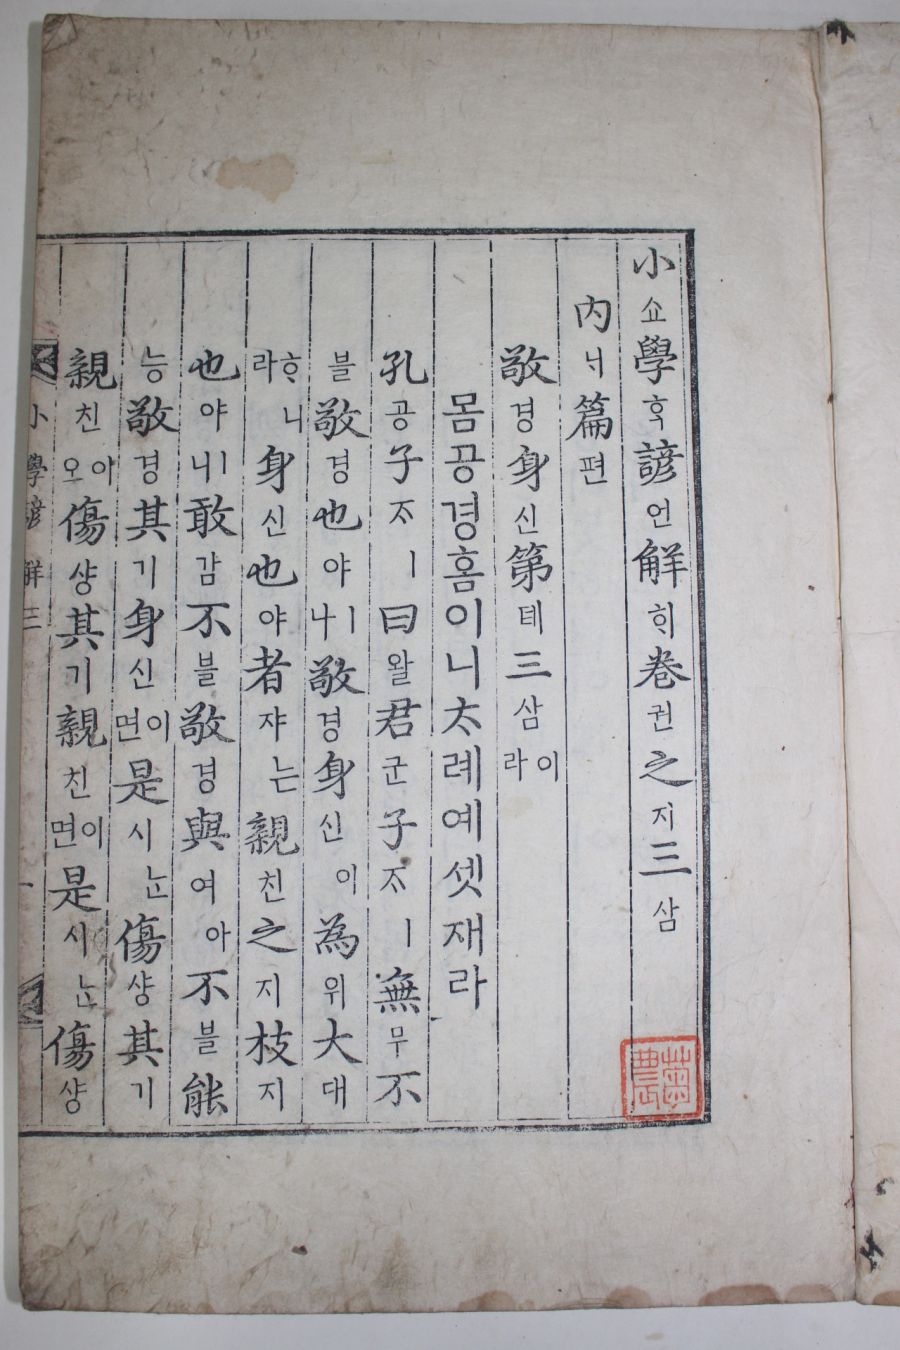 小쇼學ᄒᆞᆨ諺언解ᄒᆡ卷권之지三삼
內ᄂᆡ篇편
敬경身신第뎨三삼이라
몸공경홈이니ᄎᆞ례예셋재라
孔공子ᄌᆞㅣ曰왈君군子ᄌᆞㅣ無무不
블敬경也야ㅣ나敬경身신이為위大대
ᄒᆞ니라身신也야者쟈는親친之지枝지
也야ㅣ니敢감不블敬경與여아不블能
능敬경其기身신이면是시ᄂᆞᆫ傷샹其기
親친아오傷샹其기親친이면是시ᄂᆞᆫ傷샹
小學諺解 三 一
菊農